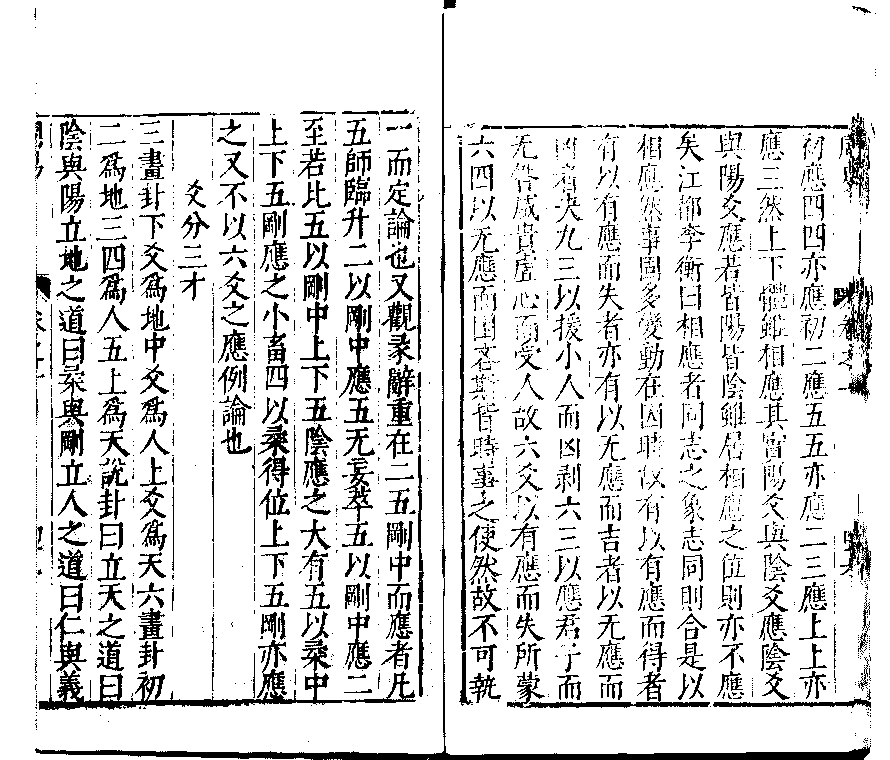 初應四四亦應初二應五五亦應二三應上上亦
應三然上下體雖相應其實陽爻與陰爻應陰爻
與陽爻應若皆陽皆陰雖居相應之位則亦不應
矣江都李衡曰相應者同志之象志同則合是以
相應然事固多變動在因時故有以有應而得者
有以有應而失者亦有以无應而吉者以无應而
凶者夬九三以援小人而凶剥六三以應君子而
无咎咸貴虛心而受人故六爻以有應而失所蒙
六四以无應而困吝斯皆時事之使然故不可執
一而定論也又觀彖辭重在二五剛中而應者凡
五師臨升二以剛中應五无妄萃五以剛中應二
至若比五以剛中上下五陰應之大有五以柔中
上下五剛應之小畜四以柔得位上下五剛亦應
之又不以六爻之應例論也
爻分三才
三畫卦下爻爲地中爻爲人上爻爲天六畫卦初
二爲地三四爲人五上爲天說卦曰立天之道曰
陰與陽立地之道曰柔與剛立人之道曰仁與義